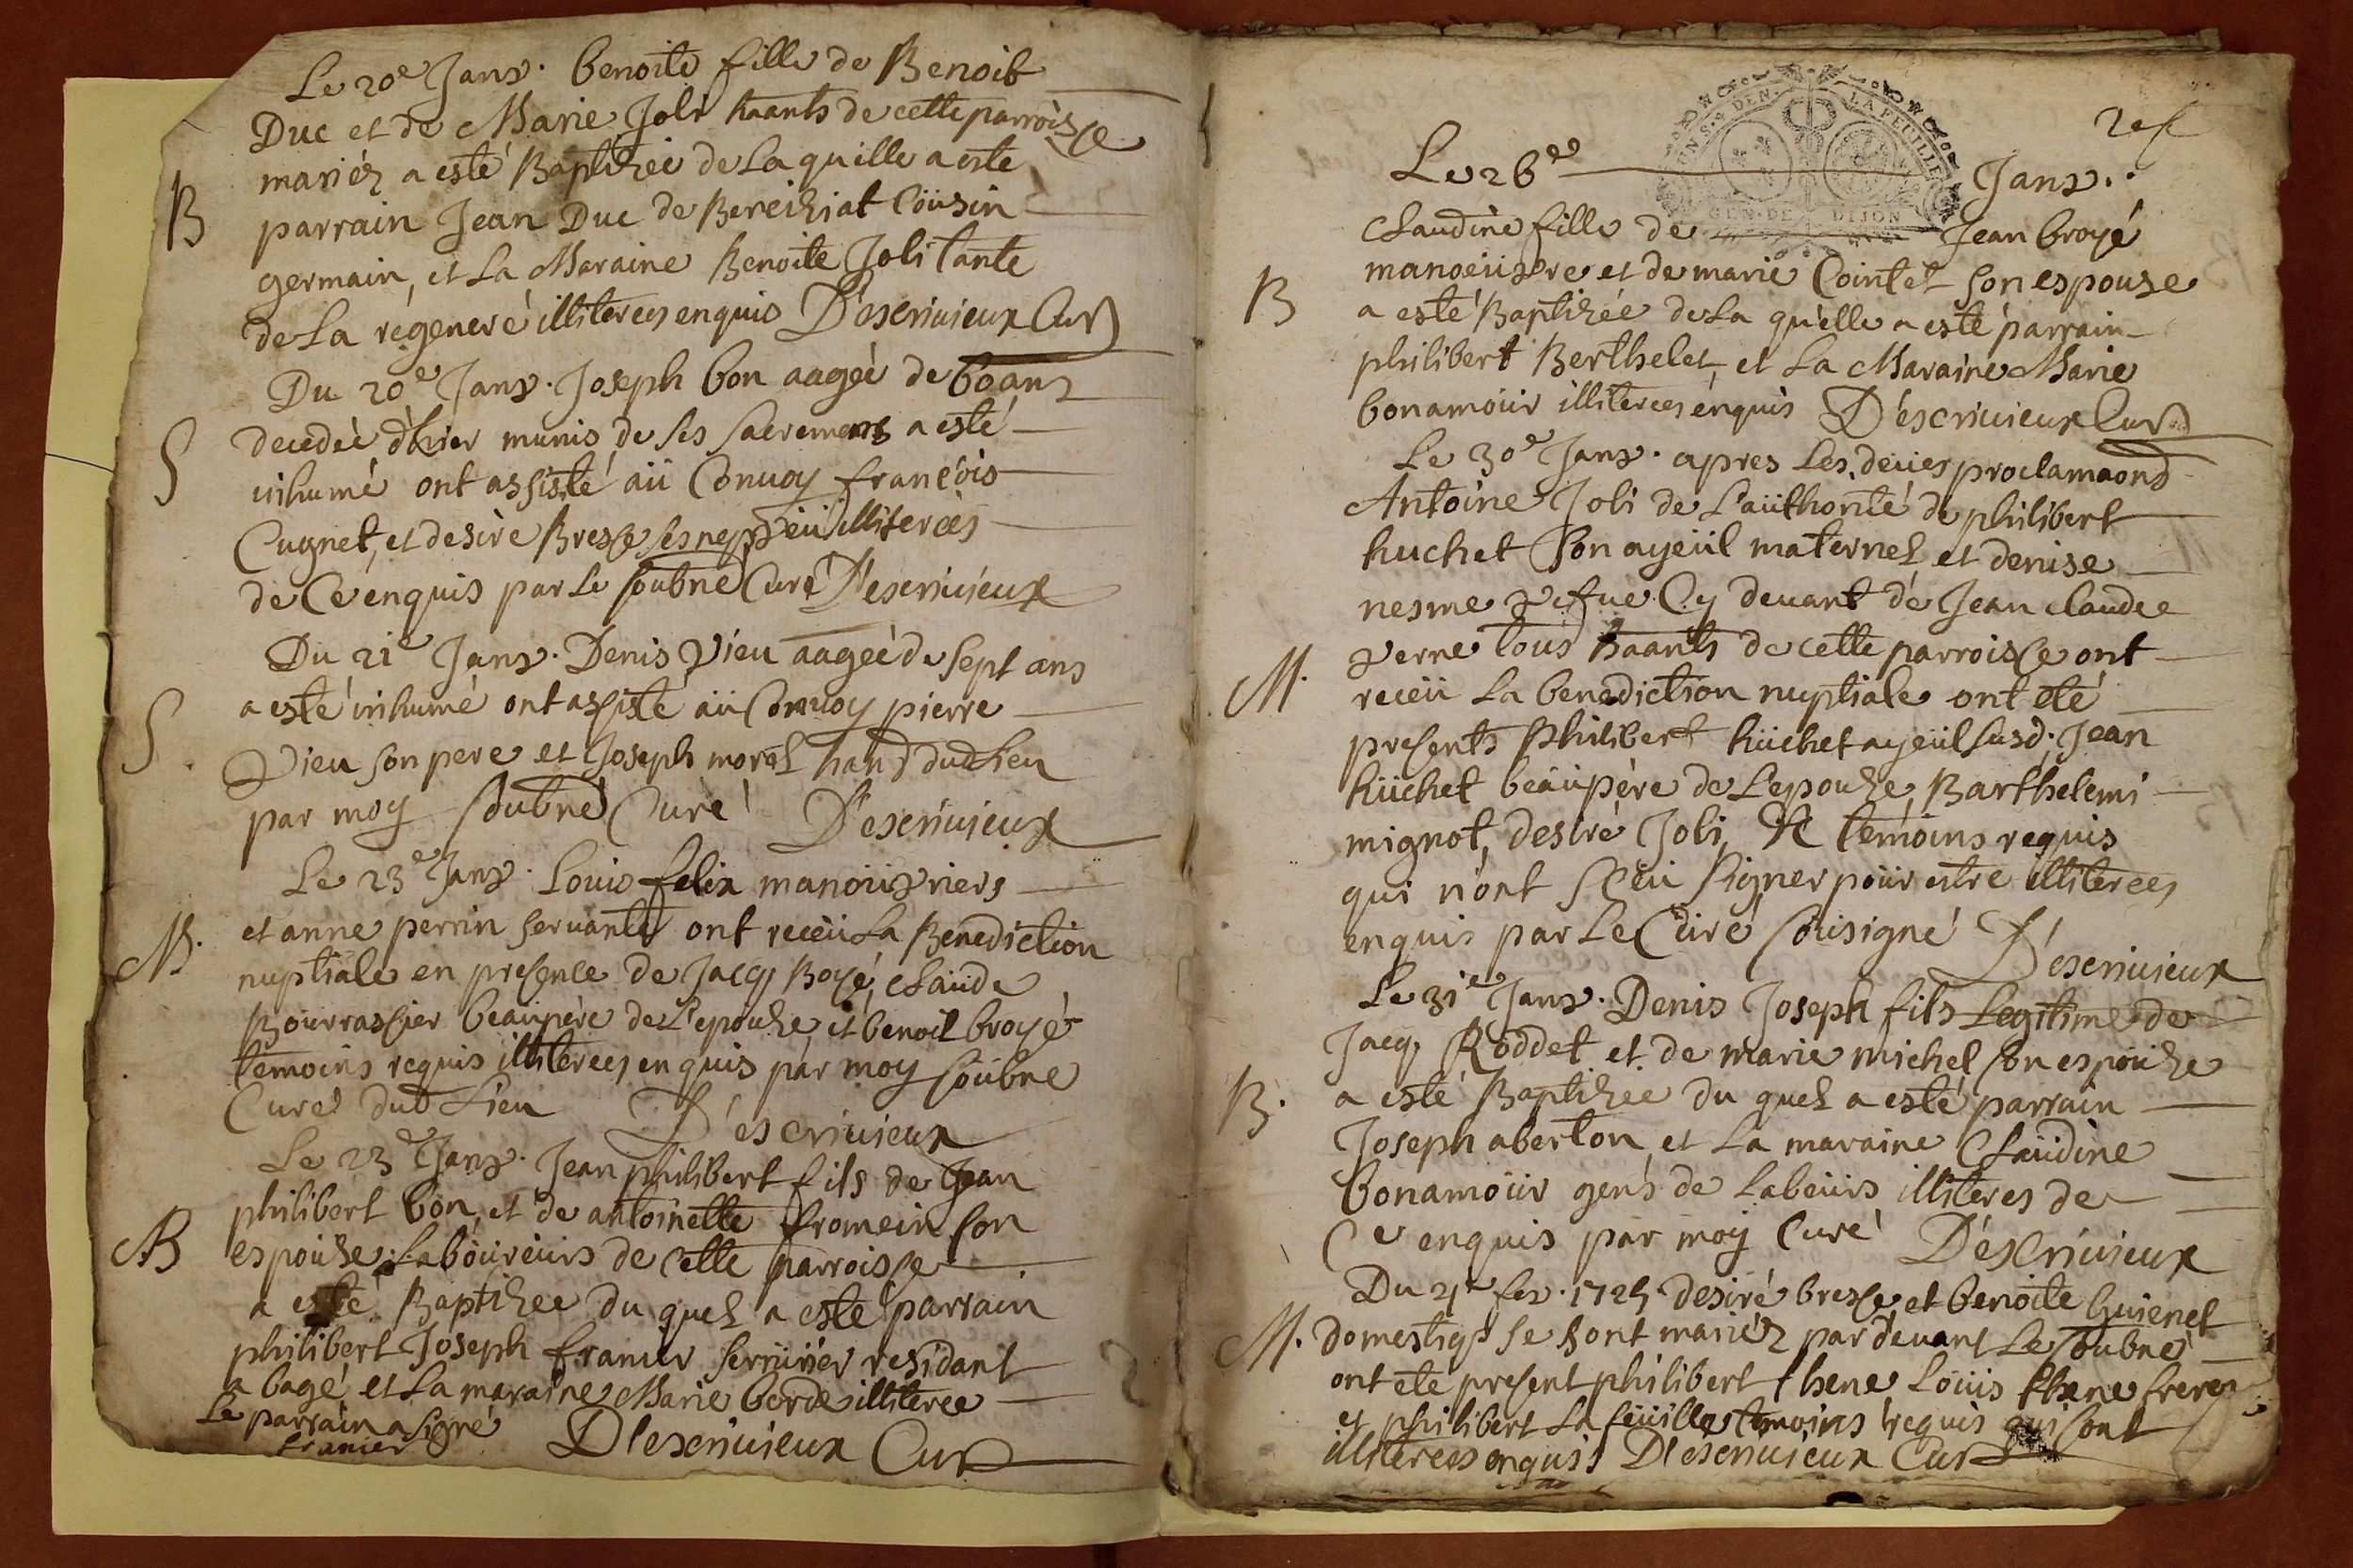 Le 20e Janv. benoite fille de Benoit
Duc et de Marie Joli haants de cette parroisse
mariéz a esté Baptizée de La quille a este
B parrain Jean Duc de Bereiziat Cousin
germain, et La Maraine Benoite Joli tante
de La regeneré illiterees enquis D'escriuieux Curé
Du 20e Janv. Joseph bon aagée de 60 ans
S decedée d'hier munis de ses sacrements a esté
inhumé ont assisté au Convoy françois
Cugnet, et desire Bresse ses nepveu illiterées
de Ce enquis par Le soubné Curé D'escriuieux
Du 21e Janv. Denis Vieu aagée de sept ans
S. a esté inhumé ont assisté au Convoy pierre
Vieu son pere et Joseph morel hand dud Lieu
par moy soubné Curé D'escriuieux
Le 23e Janv. Louis felix manouvriers
M. et anne perrin servante ont receu La Benediction
nuptiale en presence de Jacq Boyé, Claude
Bourrassier beaupère de L'epouze, et benoit broyé
temoins requis illiterees enquis par moy soubne
Curé dud Lieu D'escriuieux
Le 23e Janv. Jean philibert fils de Jean
philibert bon, et de antoinette fromein son
B espouze Laboureurs de Cette parroisse
a esté Baptizee du quel a esté parrain
philibert Joseph franier serrurier residant
a bagé et La maraine Marie borde illiteree
Le parrain a signé
franier D'escriuieux Curé
2e f
Le 26ee Janv..
GEN. DE DIJON
LA FEUILLE
Claudine fille de Jean broyé
manoeuvre et de marie Cointet son espouze
B a esté Baptizée de La quelle a esté parrain
philibert Berthelet, et La Maraine Marie
bonamour illiterees enquis D'escriuieux Curé
Le 30e Janv. apres Les deues proclamaons
Antoine Joli de L'authorité de philibert
huchet son ayeul maternel et denise
nesme vefue Cy devant de Jean claudee
M. verne tous haants de cette parroisse ont
receu La benediction nuptiale ont eté
presents Philibert huchet ayeul susd. Jean
huchet beaupère de L'epouze, Barthelemi
mignot, desiré Joli, &c temoins requis
qui n'ont sceu signer pour estre illiterees
enquis par Le Curé sousigné D'escriuieux
Le 31e Janv. Denis Joseph fils Legitime de
Jacq. Roddet et de marie michel son espouze
B. a esté Baptizee du quel a esté parrain
Joseph aberton et La maraine Claudine
bonamour gens de Labeurs illiteres de
Ce enquis par moy Curé D'escriuieux
Du fev. desiré bresse et benoite Guienet
M. domestiqs se sont mariéz par devant Le soubné
ont eté present philibert thene Louis thene freres
et philibert La feuille temoins requis qui sont
illiterees enquis D'escriuieux Curé